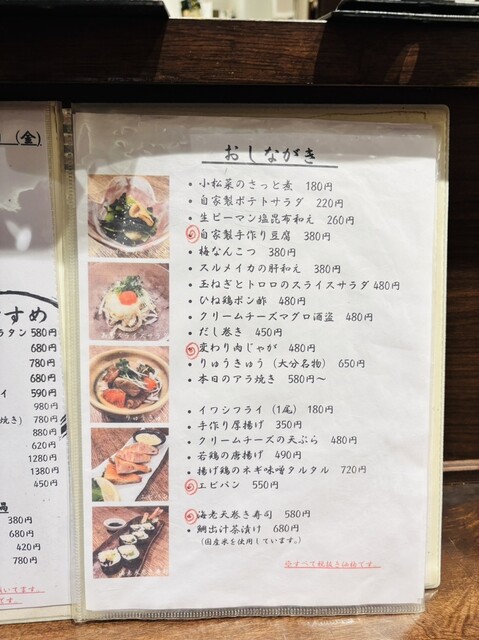 (金)
すめ
ラタン 580円
680円
780円
680円
イ 590円
980円
焼き) 780円
880円
620円
1280円
1380円
450円
380円
580円
420円
780円
おしながき
・小松菜のさっと煮 180円
・自家製ポテトサラダ 220円
・生ピーマン塩昆布和え 260円
・自家製手作り豆腐 380円
・梅なんこつ 380円
・スルメイカの肝和え 380円
・玉ねぎとトロロのスライスサラダ 480円
・ひね鶏ポン酢 480円
・クリームチーズマグロ酒盗 480円
・だし巻き 450円
・変わり肉じゃが 480円
・りゅうきゅう (大分名物) 650円
・本日のアラ焼き 580円〜
・イワシフライ (1尾) 180円
・手作り厚揚げ 350円
・クリームチーズの天ぷら 480円
・若鶏の唐揚げ 490円
・揚げ鶏のネギ味噌タルタル 720円
・エビパン 550円
・海老天巻き寿司 580円
・鯛出汁茶漬け 680円
(国産米を使用しています。)
※すべて税抜き価格です。